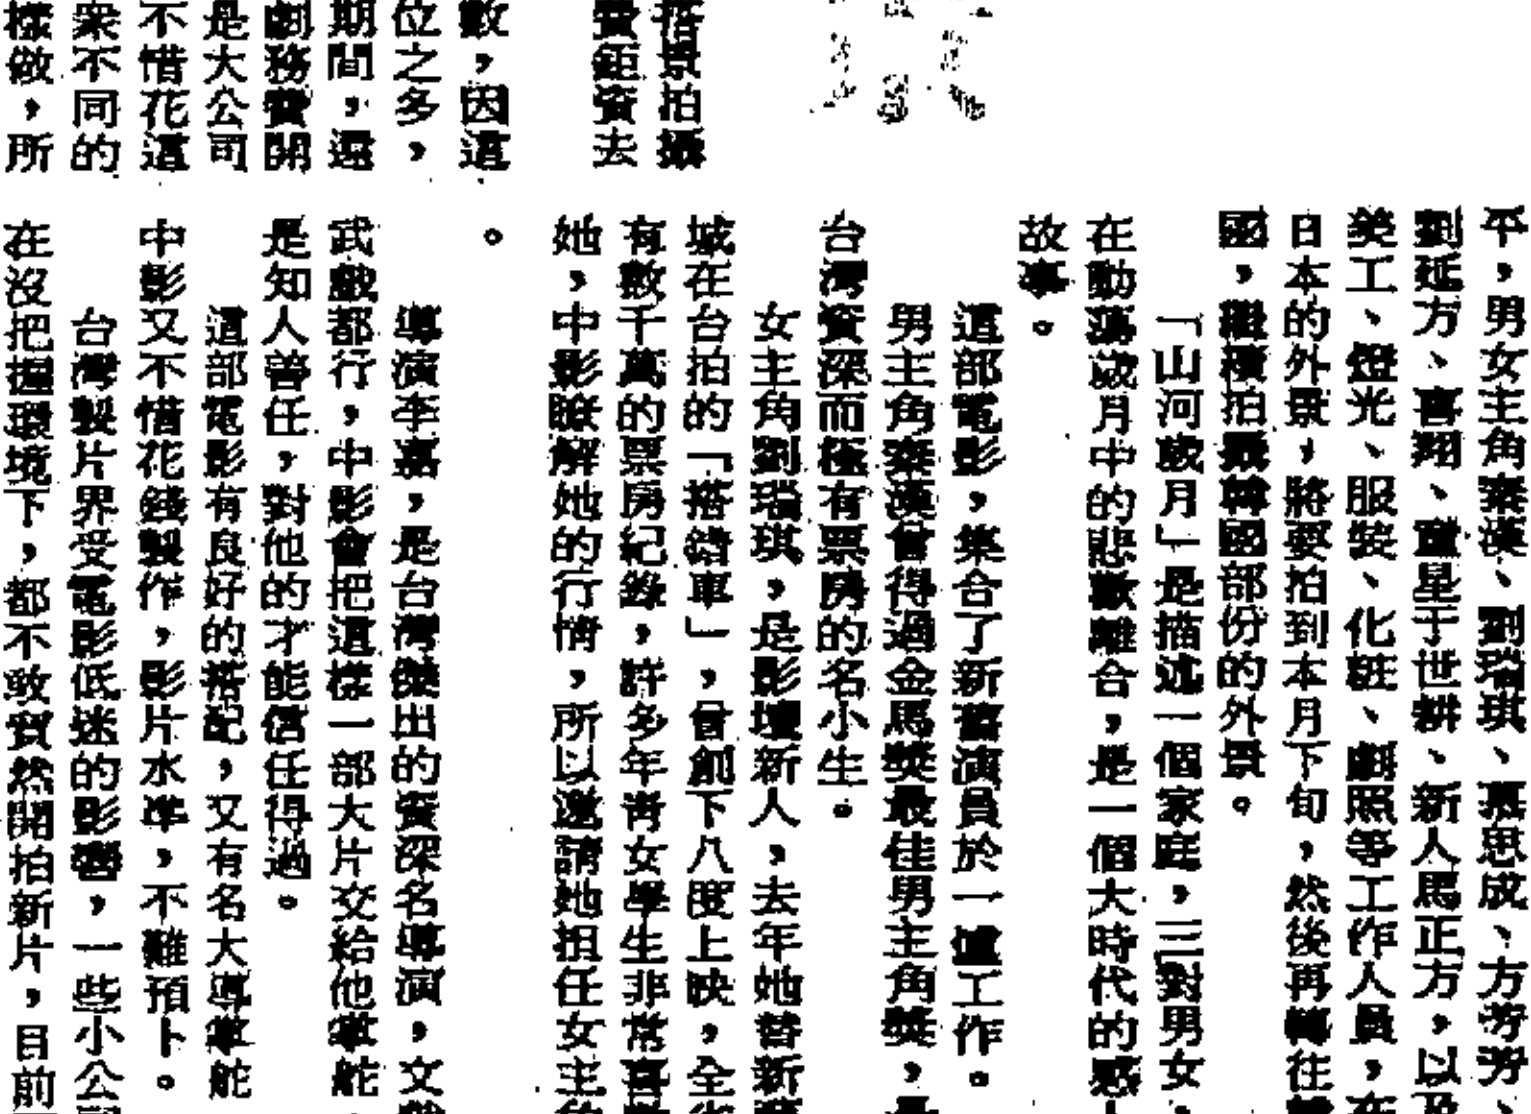 搭景拍攝
費鉅資去
數，因這
位之多，
期間，還
劇務費開
是大公司
不惜花這
衆不同的
樣做，所
平，男女主角秦漢、劉瑞琪、慕思成、方芳芳、
劉延方、喜翔、童星于世耕、新人馬正方，以及
美工、燈光、服裝、化粧、劇照等工作人員，在
日本的外景，將要拍到本月下旬，然後再轉往韓
國，繼續拍攝韓國部份的外景。
「山河歲月」是描述一個家庭，三對男女，
在動蕩歲月中的悲歡離合，是一個大時代的感人
故事。
這部電影，集合了新舊演員於一爐工作。
男主角秦漢曾得過金馬獎最佳男主角獎，是
台灣資深而極有票房的名小生。
女主角劉瑞琪，是影壇新人，去年她替新藝
城在台拍的「搭錯車」，曾創下八度上映，全省
有數千萬的票房紀錄，許多年青女學生非常喜歡
她，中影瞭解她的行情，所以邀請她担任女主角
。
導演李嘉，是台灣傑出的資深名導演，文戲
武戲都行，中影會把這樣一部大片交給他掌舵，
是知人善任，對他的才能信任得過。
這部電影有良好的搭配，又有名大導掌舵
中影又不惜花錢製作，影片水準，不難預卜。
台灣製片界受電影低迷的影響，一些小公司
在沒把握環境下，都不敢貿然開拍新片，目前